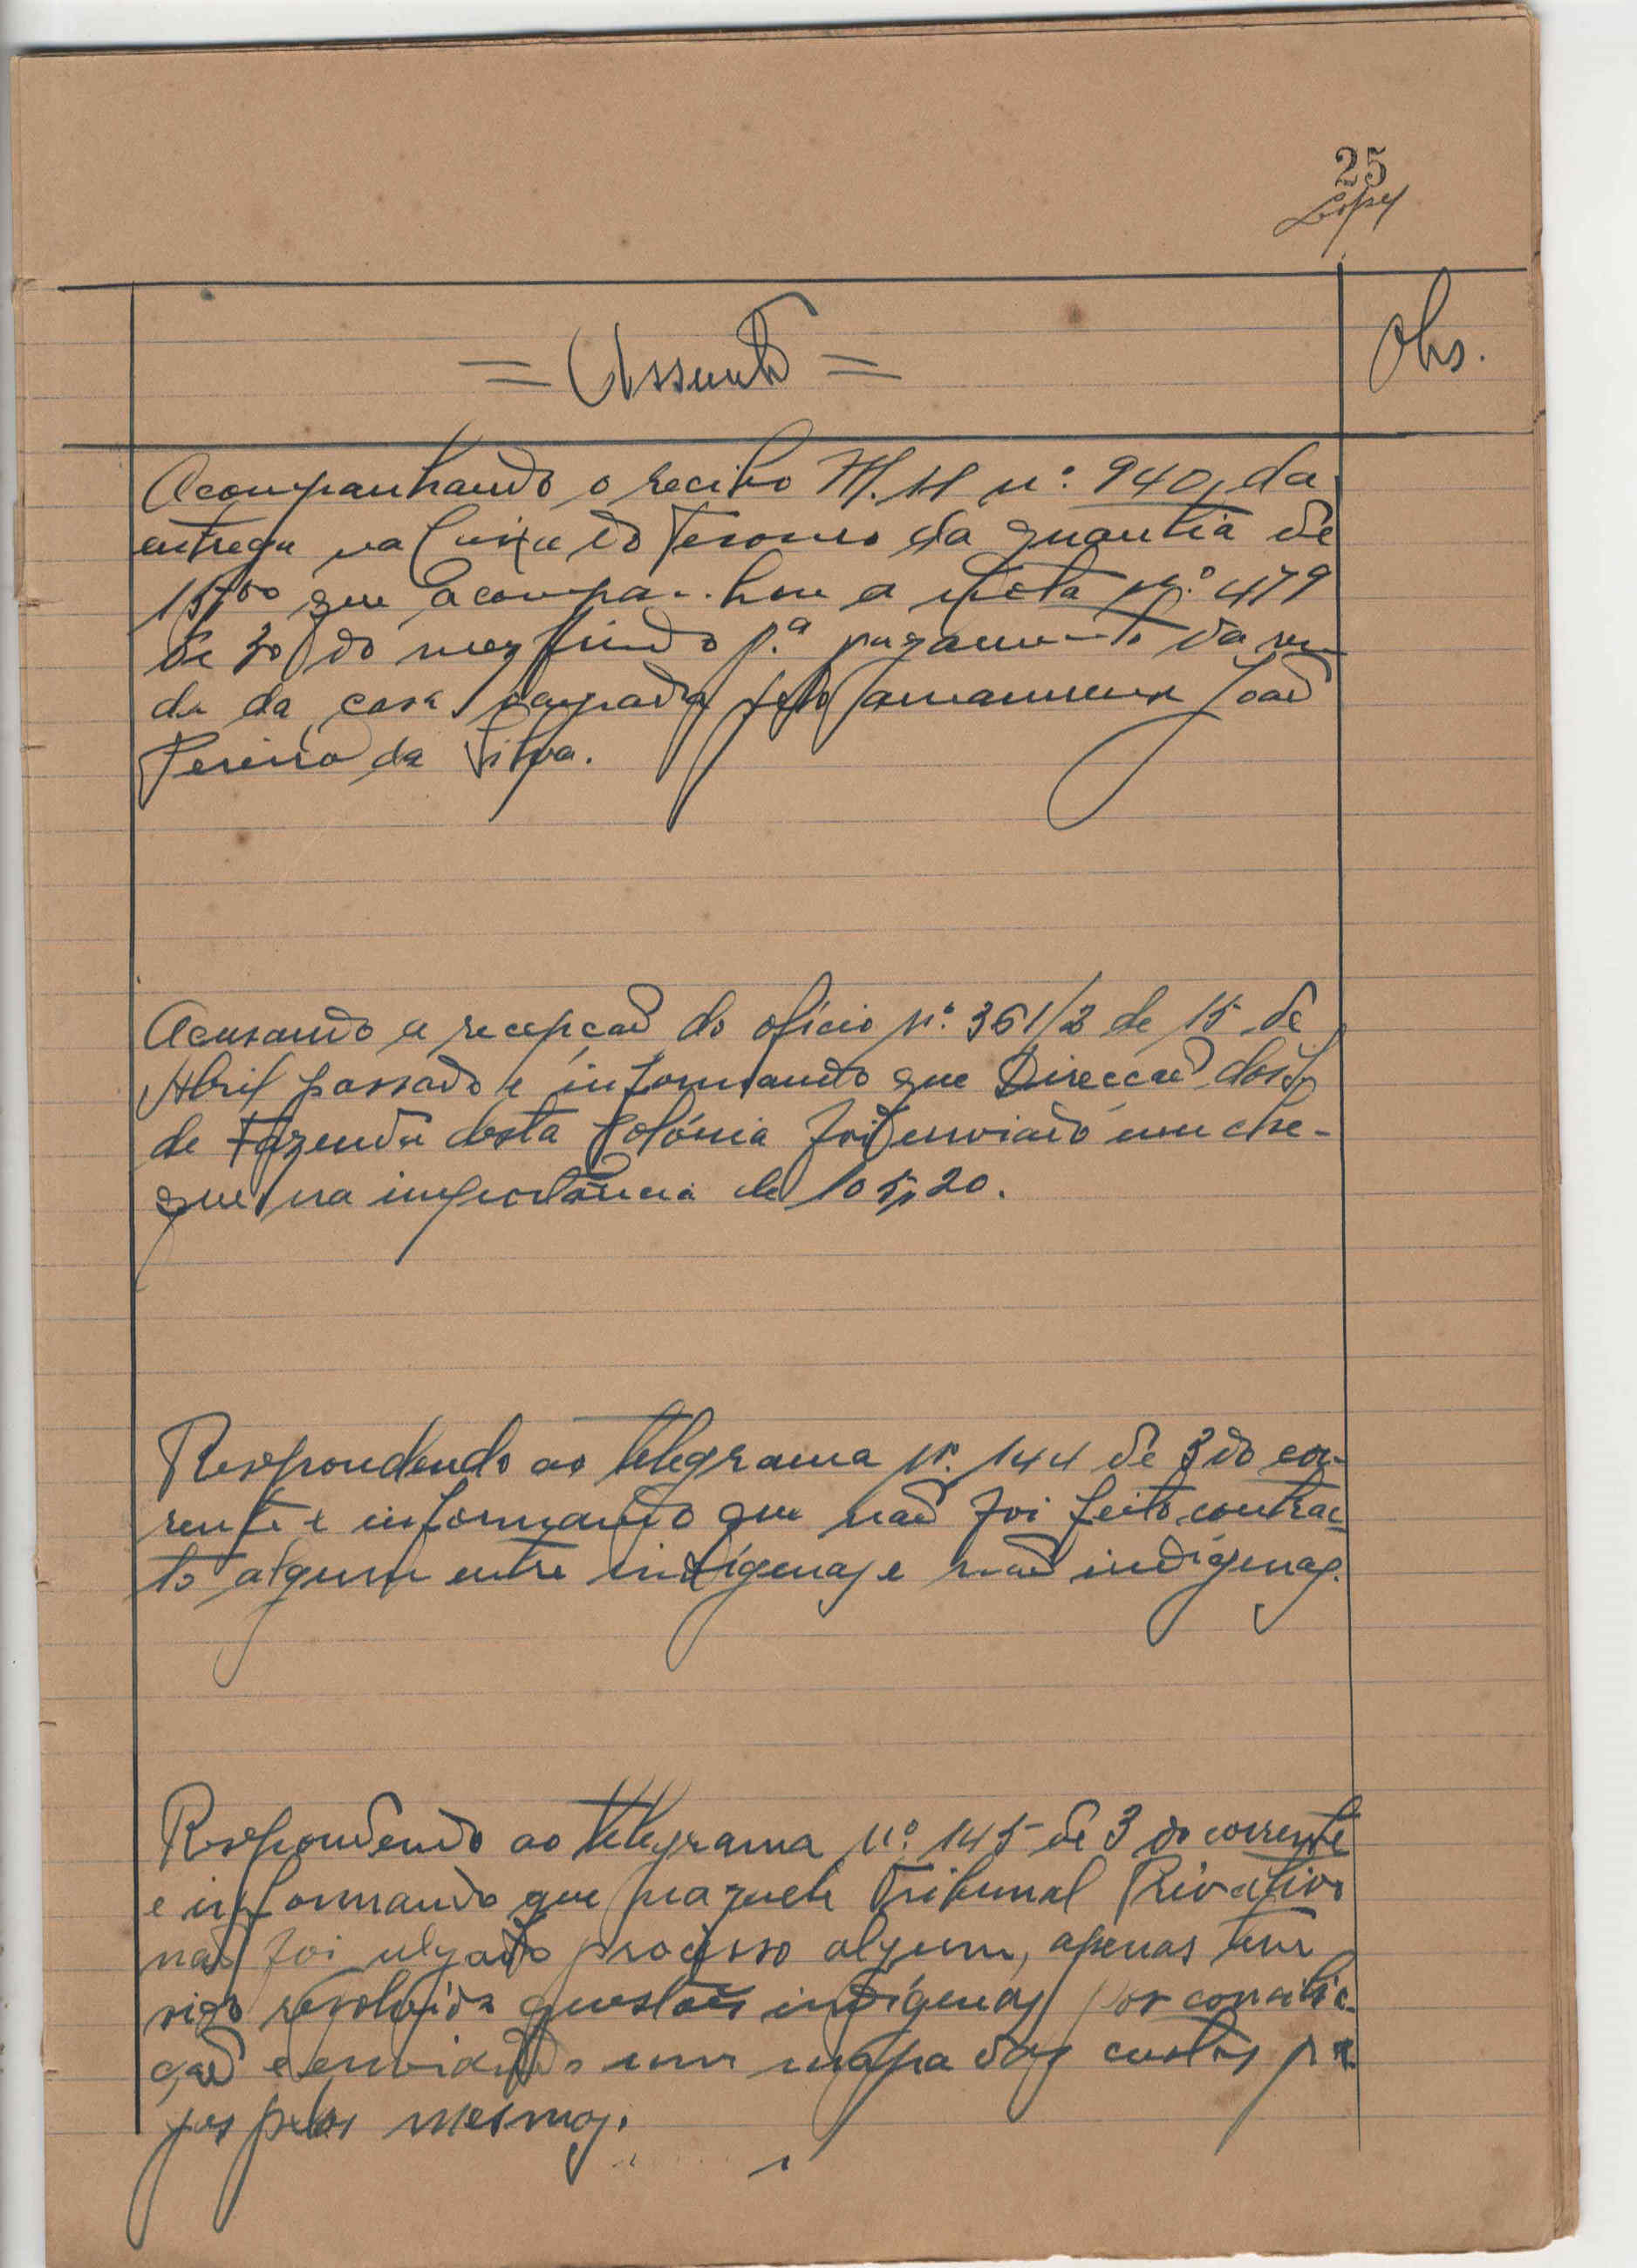 25
Lopes
= Assunto =
Obs.
Acompanhando o recibo M. H nº 940, da
entrega na Caixa do Tesouro da quantia de
que acompanhou a nota nº 479
de 30 do mez findo p.ª pagamento da ren
da da casa ocupada pelo amanuense João
Pereira da Silva.
Acusando a recepção do ofício nº 361/2 de 15 de
Abril passado e informando que Direcção dos
de Fazenda desta Colónia foi enviado um che-
que na importância de 105$20.
Respondendo ao telegrama nº 144 de 3 do cor-
rente e informando que não foi feito contrac
to algum entre indígenas e não indígenas.
Respondendo ao telegrama nº 145 de 3 do corrente
e informando que naquele Tribunal Privativo
não foi ulgado processo algum, apenas tem
sido resolvida questões indígenas por concilia-
ção e enviando um mapa das custas pa
gas pelos mesmos.